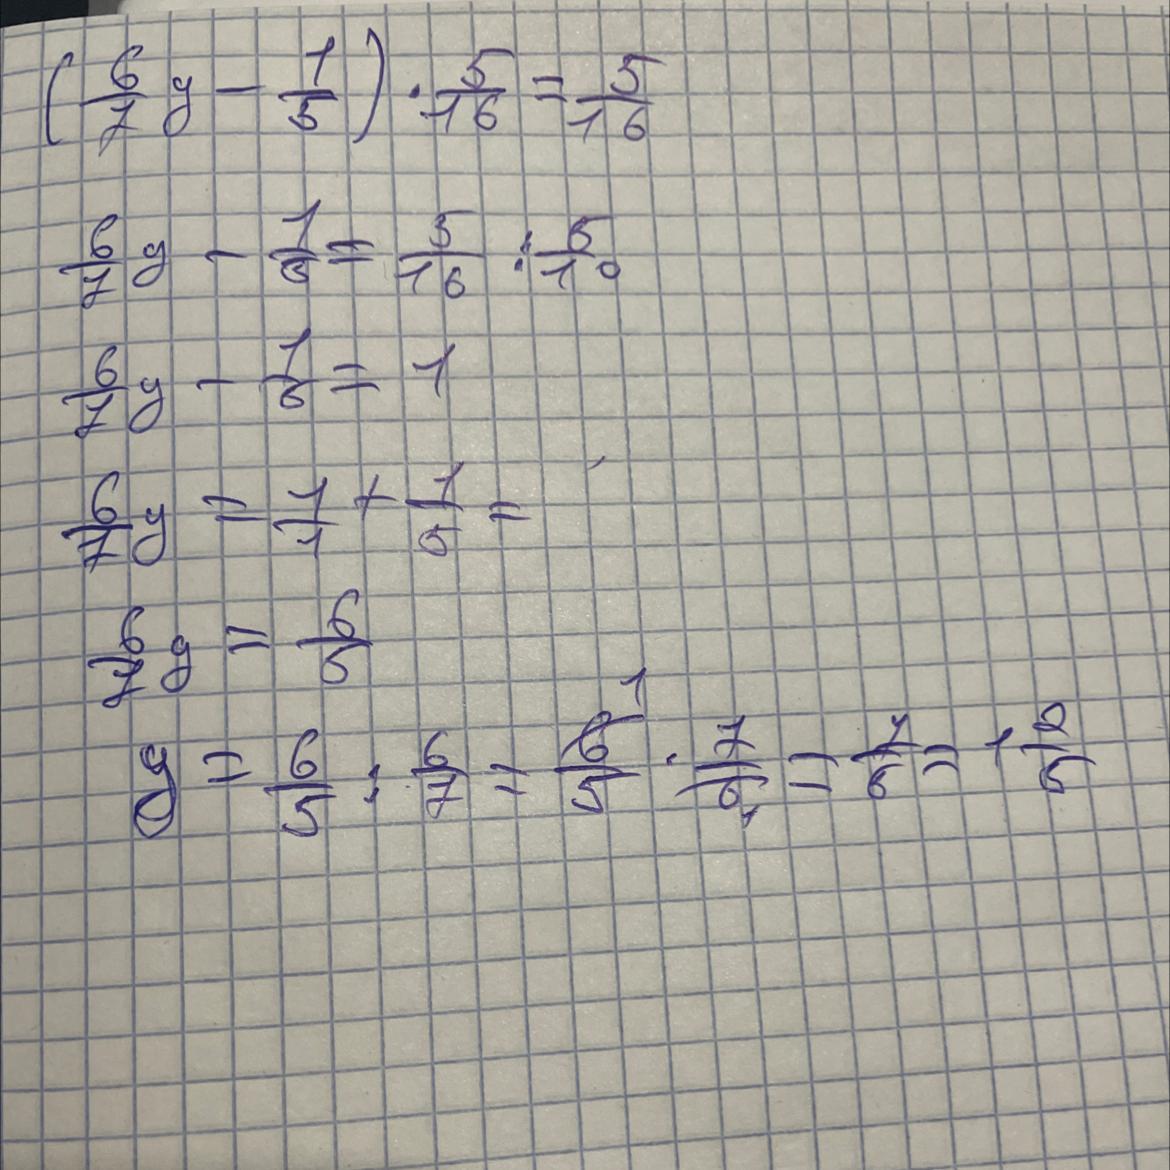 (6/7 y - 1/5) · 5/16 = 5/16
6/7 y - 1/5 = 5/16 : 5/16
6/7 y - 1/5 = 1
6/7 y = 1/1 + 1/5 =
6/7 y = 6/5
y = 6/5 : 6/7 = 6/5 1 · 7/6 1 = 7/5 = 1 2/5